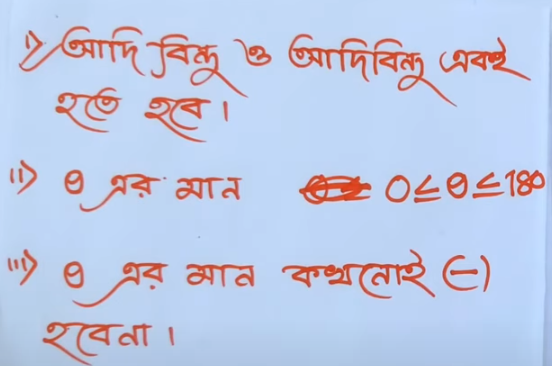 i) আদি বিন্দু ও আদিবিন্দু একই
হতে হবে।
ii) θ এর মান 0≤θ≤180
iii) θ এর মান কখনোই (−)
হবেনা।